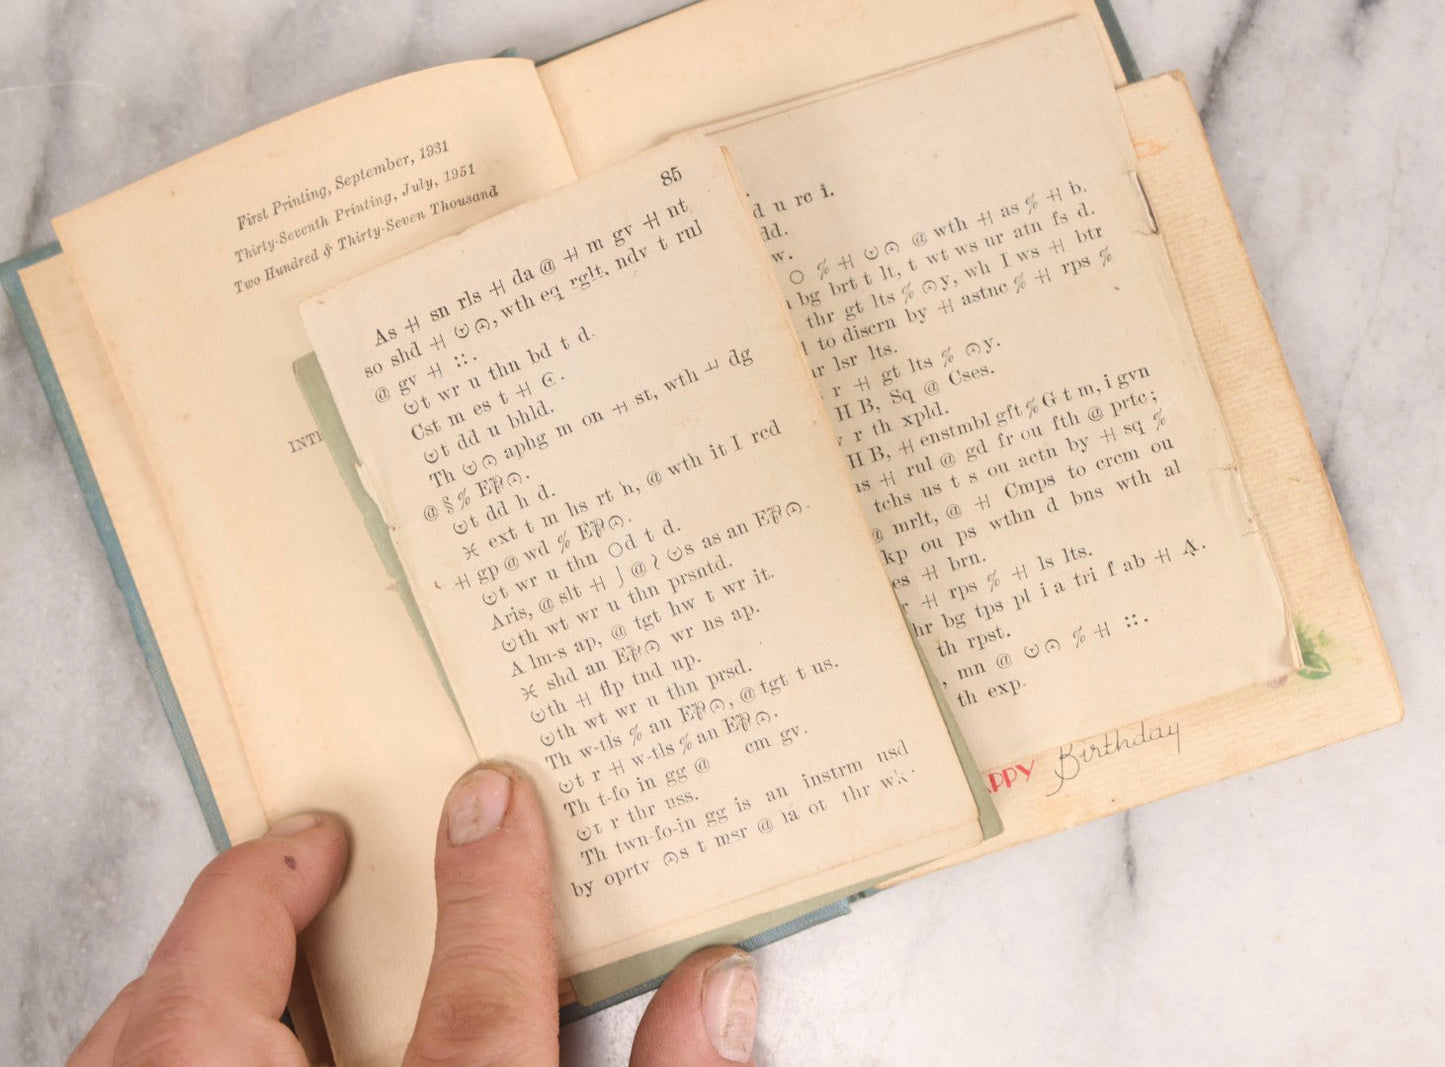 First Printing, September, 1931
Thirty-Seventh Printing, July, 1951
Two Hundred & Thirty-Seven Thousand
INT
85
As ㅐ sn rls ㅐ da @ ㅐ m gv ㅐ nt,
so shd ㅐ ☉☉, wth eq rglt, ndv t rul
@ gv ㅐ ∷.
☉t wr u thn bd t d.
Cst m es t ㅐ C.
☉t dd u bhld.
Th ☉☉ aphg m on ㅐ st, wth dg
@ § % EP☉.
☉t dd h d.
ext t m hs rt h, @ wth it I rcd
ㅐ gp @ wd % EP☉.
☉t wr u thn ○d t d.
Aris, @ slt ㅐ ⌡ @ ☉s as an EP☉.
☉th wt wr u thn prsntd.
A lm-s ap, @ tgt hw t wr it.
shd an EP☉ wr ns ap.
☉th ㅐ flp tnd up.
☉th wt wr u thn prsd.
Th w-tls % an EP☉, @ tgt t us.
☉t r ㅐ w-tls % an EP☉.
Th t-fo in gg @ cm gv.
☉t r thr uss.
Th twn-fo-in gg is an instrm usd
by oprtv ☉s t msr @ la ot thr wk.
d u rc i.
dd.
w.
○ % ㅐ ☉☉ @ wth ㅐ as % ㅐ b.
bg brt t lt, t wt ws ur atn fs d.
thr gt lts % ☉y, wh I ws ㅐ btr
to discrn by ㅐ astnc % ㅐ rps %
lsr lts.
r ㅐ gt lts % ☉y.
H B, Sq @ Cses.
r th xpld.
H B, ㅐ enstmbl gft % G t m, i gvn
ㅐ rul @ gd fr ou fth @ prtc;
tchs us t s ou actn by ㅐ sq %
@ mrlt, @ ㅐ Cmps to crcm ou
kp ou ps wthn d bns wth al
es ㅐ brn.
r ㅐ rps % ㅐ ls lts.
hr bg tps pl i a tri f ab ㅐ A.
th rpst.
, mn @ ☉☉ % ㅐ ∷.
th exp.
PPY Birthday